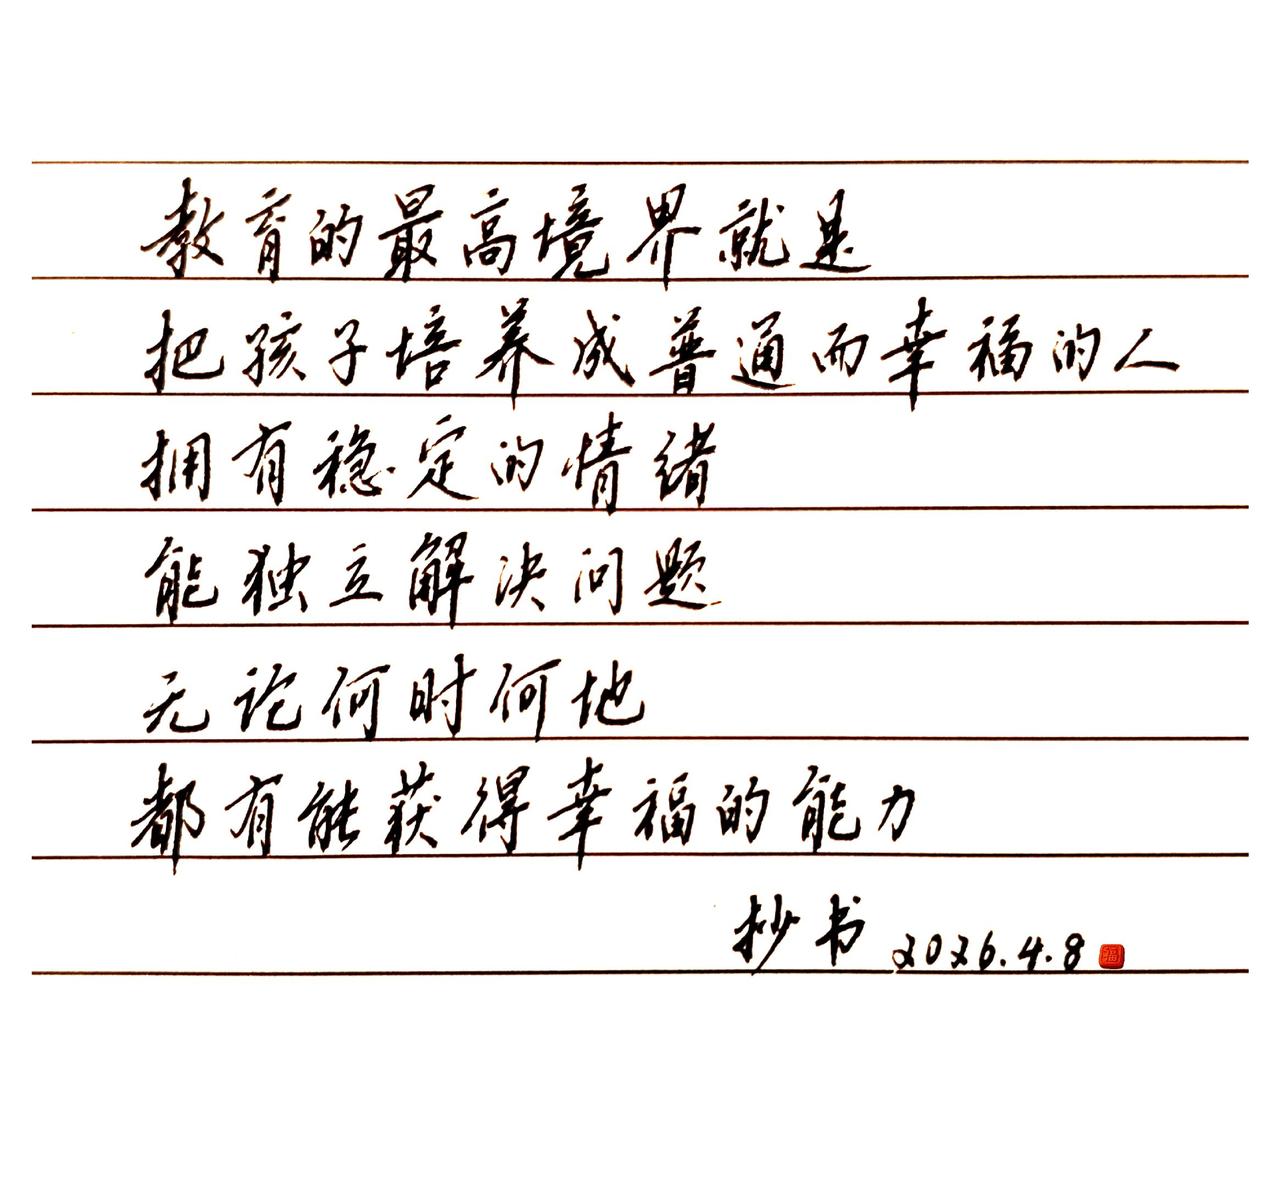 教育的最高境界就是
把孩子培养成普通而幸福的人
拥有稳定的情绪
能独立解决问题
无论何时何地
都有能获得幸福的能力
抄书 2026.4.8 福